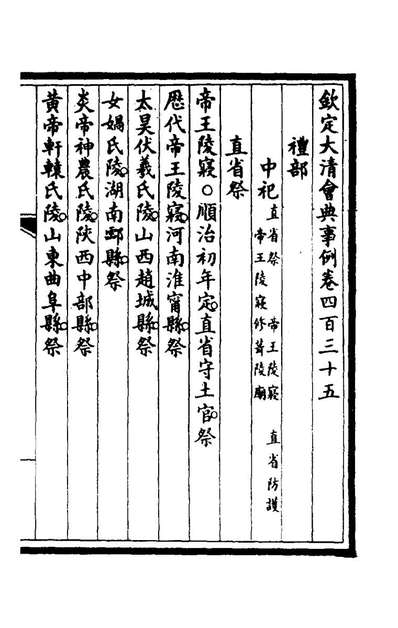 欽定大清會典事例卷四百三十五
禮部
中祀 直省祭 帝王陵寢 直省防護
帝王陵寢修葺陵廟
直省祭
帝王陵寢〇順治初年定。直省守土官。祭
厯代帝王陵寢。河南淮甯縣。祭
太昊伏羲氏陵。山西趙城縣。祭
女媧氏陵。湖南酃縣。祭
炎帝神農氏陵。陝西中部縣。祭
黃帝軒轅氏陵。山東曲阜縣。祭